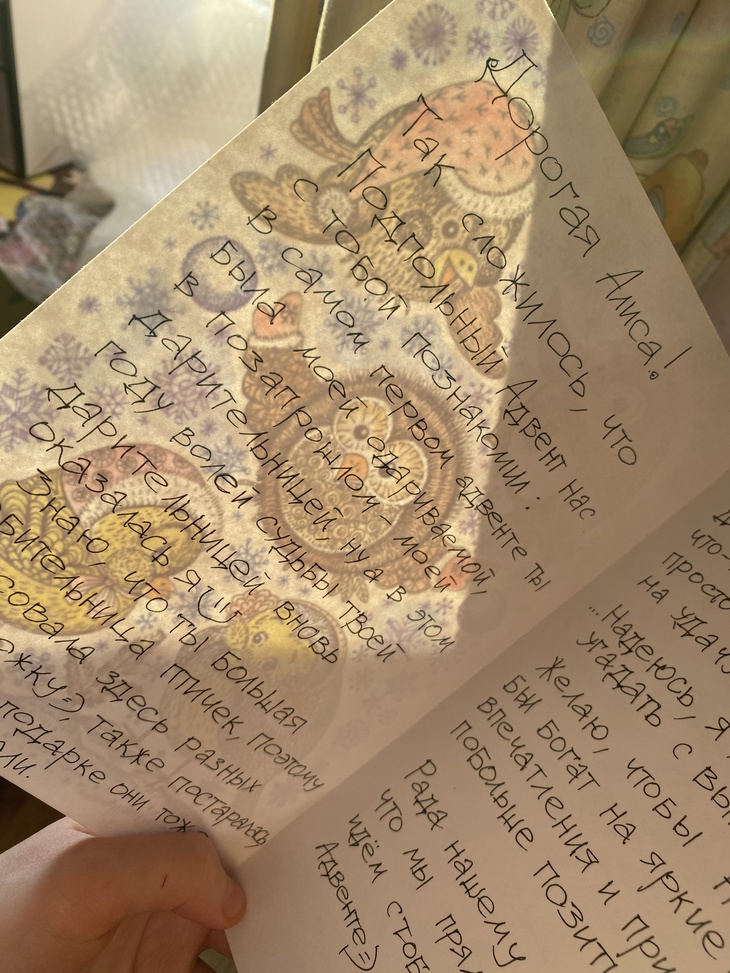 Дорогая Алиса!
Так сложилось, что
Подпольный Адвент нас
с тобой познакомил:
в самом первом адвенте ты
была моей одариваемой,
в позапрошлом - моей
Дарительницей, ну а в этом
году волей судьбы твоей
Дарительницей вновь
оказалась я
Знаю, что ты большая
птичек, поэтому
здесь разных
также постаралась
подарке они
что-
просто
на удачу
...Надеюсь, я
угадать с
Желаю, чтобы
был богат на яркие
впечатления и
побольше
Рада нашему
что мы
идём с тоб
Адвенте =)